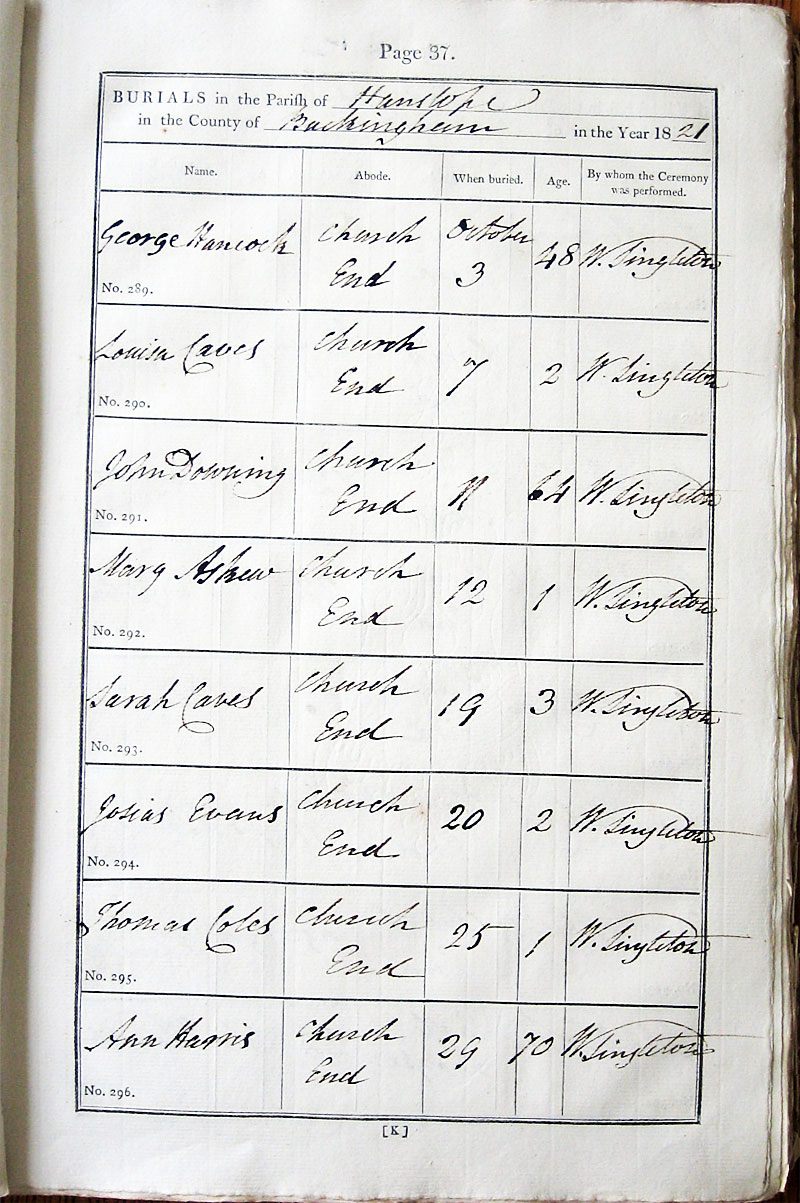 Page 37.
BURIALS in the Parish of Hanslope
in the County of Buckingham in the Year 18 21
Name. Abode. When buried. Age. By whom the Ceremony was performed.
George Hancock Church End October 3 48 W. Singleton
No. 289.
Louisa Caves Church End 7 2 W. Singleton
No. 290.
John Downing Church End 11 64 W. Singleton
No. 291.
Mary Askew Church End 12 1 W. Singleton
No. 292.
Sarah Caves Church End 19 3 W. Singleton
No. 293.
Josias Evans Church End 20 2 W. Singleton
No. 294.
Thomas Coles Church End 25 1 W. Singleton
No. 295.
Ann Harris Church End 29 70 W. Singleton
No. 296.
[K]